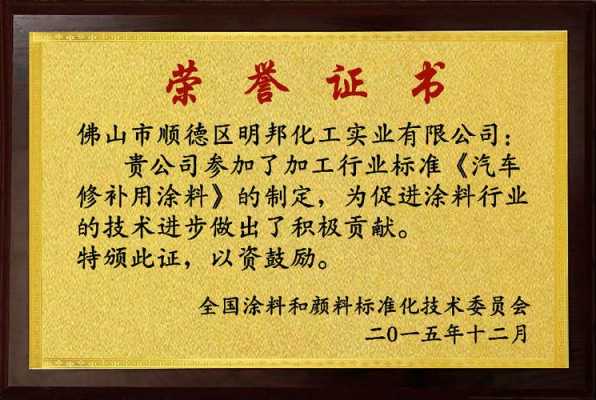 荣誉证书
佛山市顺德区明邦化工实业有限公司：
贵公司参加了加工行业标准《汽车
修补用涂料》的制定，为促进涂料行业
的技术进步做出了积极贡献。
特颁此证，以资鼓励。
全国涂料和颜料标准化技术委员会
二〇一五年十二月